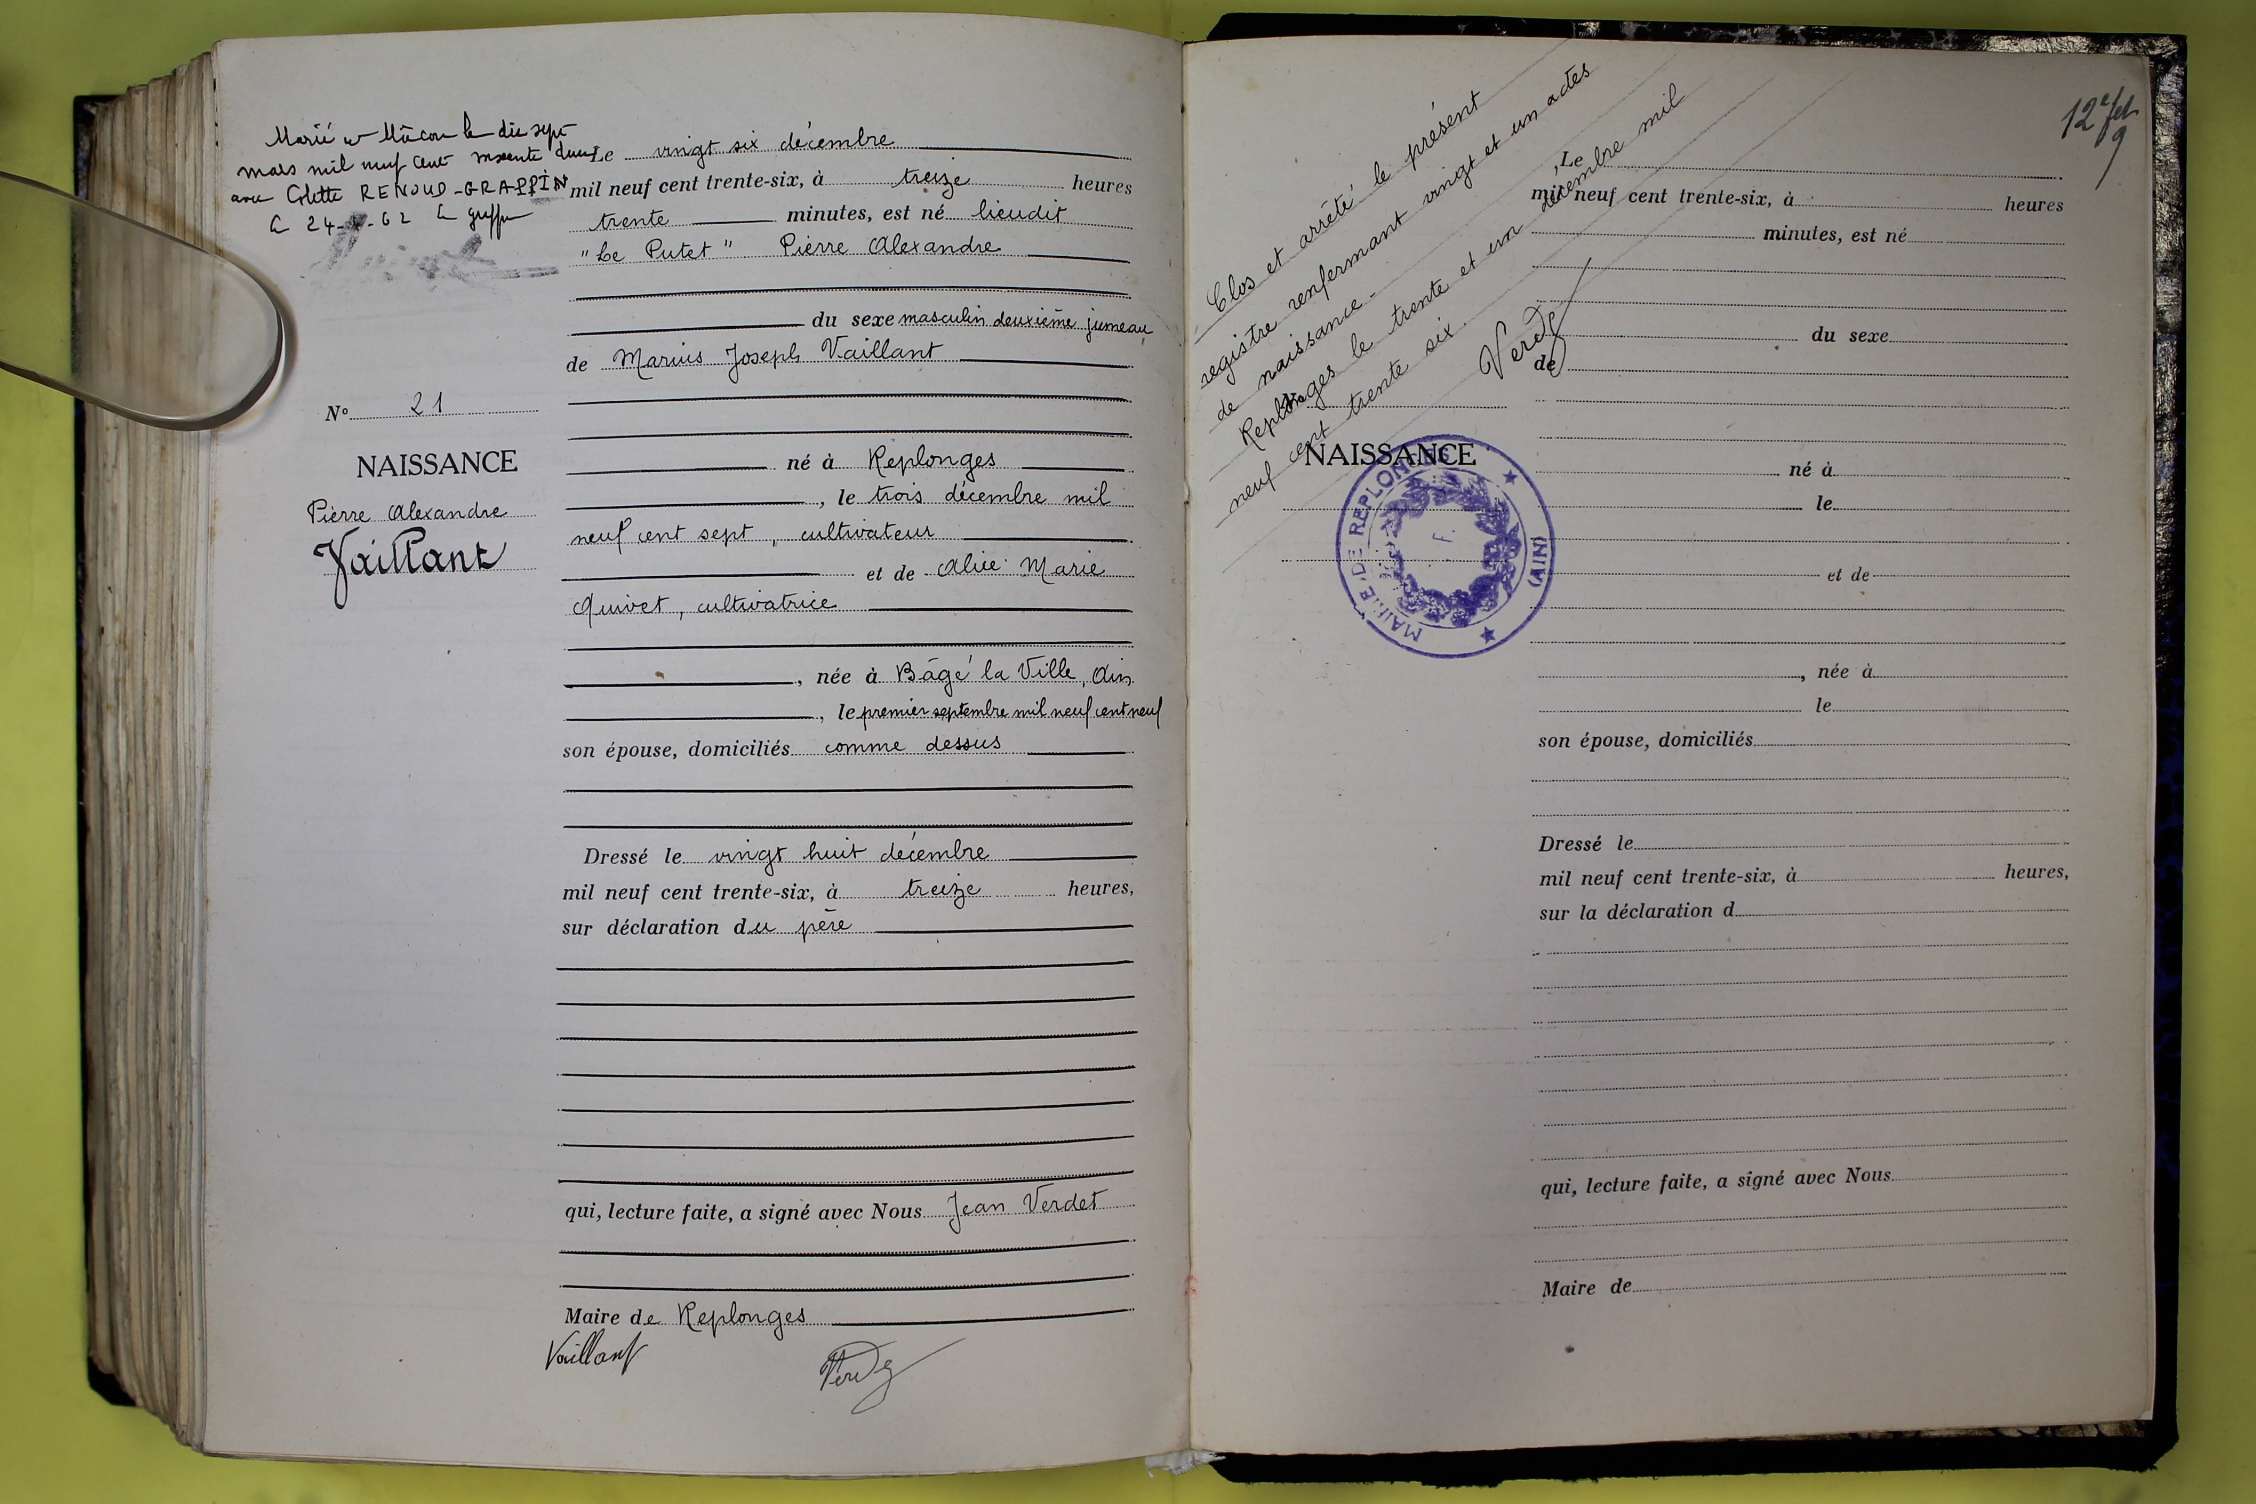 Marié à Mâcon le dix sept
mars mil neuf cent soixante deux
avec Colette RENOUD-GRAPPIN
le 24-3-62 le greffier
Le vingt six décembre
mil neuf cent trente-six, à treize heures
trente minutes, est né lieudit
"Le Putet" Pierre Alexandre
du sexe masculin deuxième jumeau,
de Marius Joseph Vaillant
né à Replonges
, le trois décembre mil
neuf cent sept, cultivateur
et de Alice Marie
Quivet, cultivatrice
, née à Bâgé la Ville, Ain
, le premier septembre mil neuf cent neuf
son épouse, domiciliés comme dessus
Dressé le vingt huit décembre
mil neuf cent trente-six, à treize heures,
sur déclaration du père
qui, lecture faite, a signé avec Nous Jean Verdet
Maire de Replonges
Vaillant
Verdet
N° 21
NAISSANCE
Pierre Alexandre
Vaillant
12e fet
9
Clos et arrêté le présent
registre renfermant vingt et un actes
de naissance.
Replonges le trente et un décembre mil
neuf cent trente six.
Verdet
Le
mil neuf cent trente-six, à heures
minutes, est né
du sexe
de
NAISSANCE
MAIRIE DE REPLONGES
(AIN)
né à
le
et de
, née à
le
son épouse, domiciliés
Dressé le
mil neuf cent trente-six, à heures,
sur la déclaration d
qui, lecture faite, a signé avec Nous
Maire de